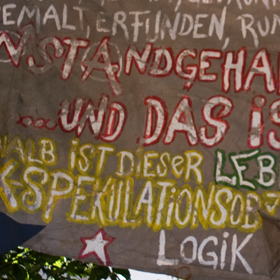 EMALT, ERFUNDEN, RUM
NSTANDGEHA
...UND DAS IS
HALB IST DIESER LEB
KSPEKULATIONSOB
LOGIK